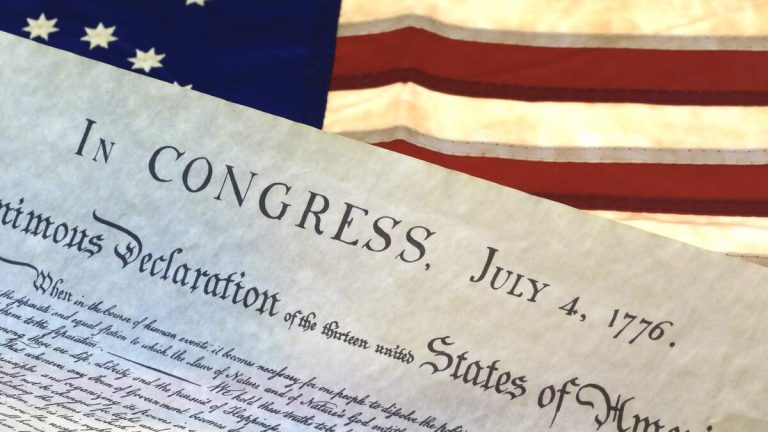 In CONGRESS, July 4, 1776.
nimous Declaration of the thirteen united States of Ameri
When in the Course of human events, it becomes necessary for one people to dissolve the
the separate and equal station to which the Laws of Nature and of Nature's God entitle
them to the separation. We hold these truths to be
they are Life, Liberty and the pursuit of Happiness
That whenever any Form of Government becomes